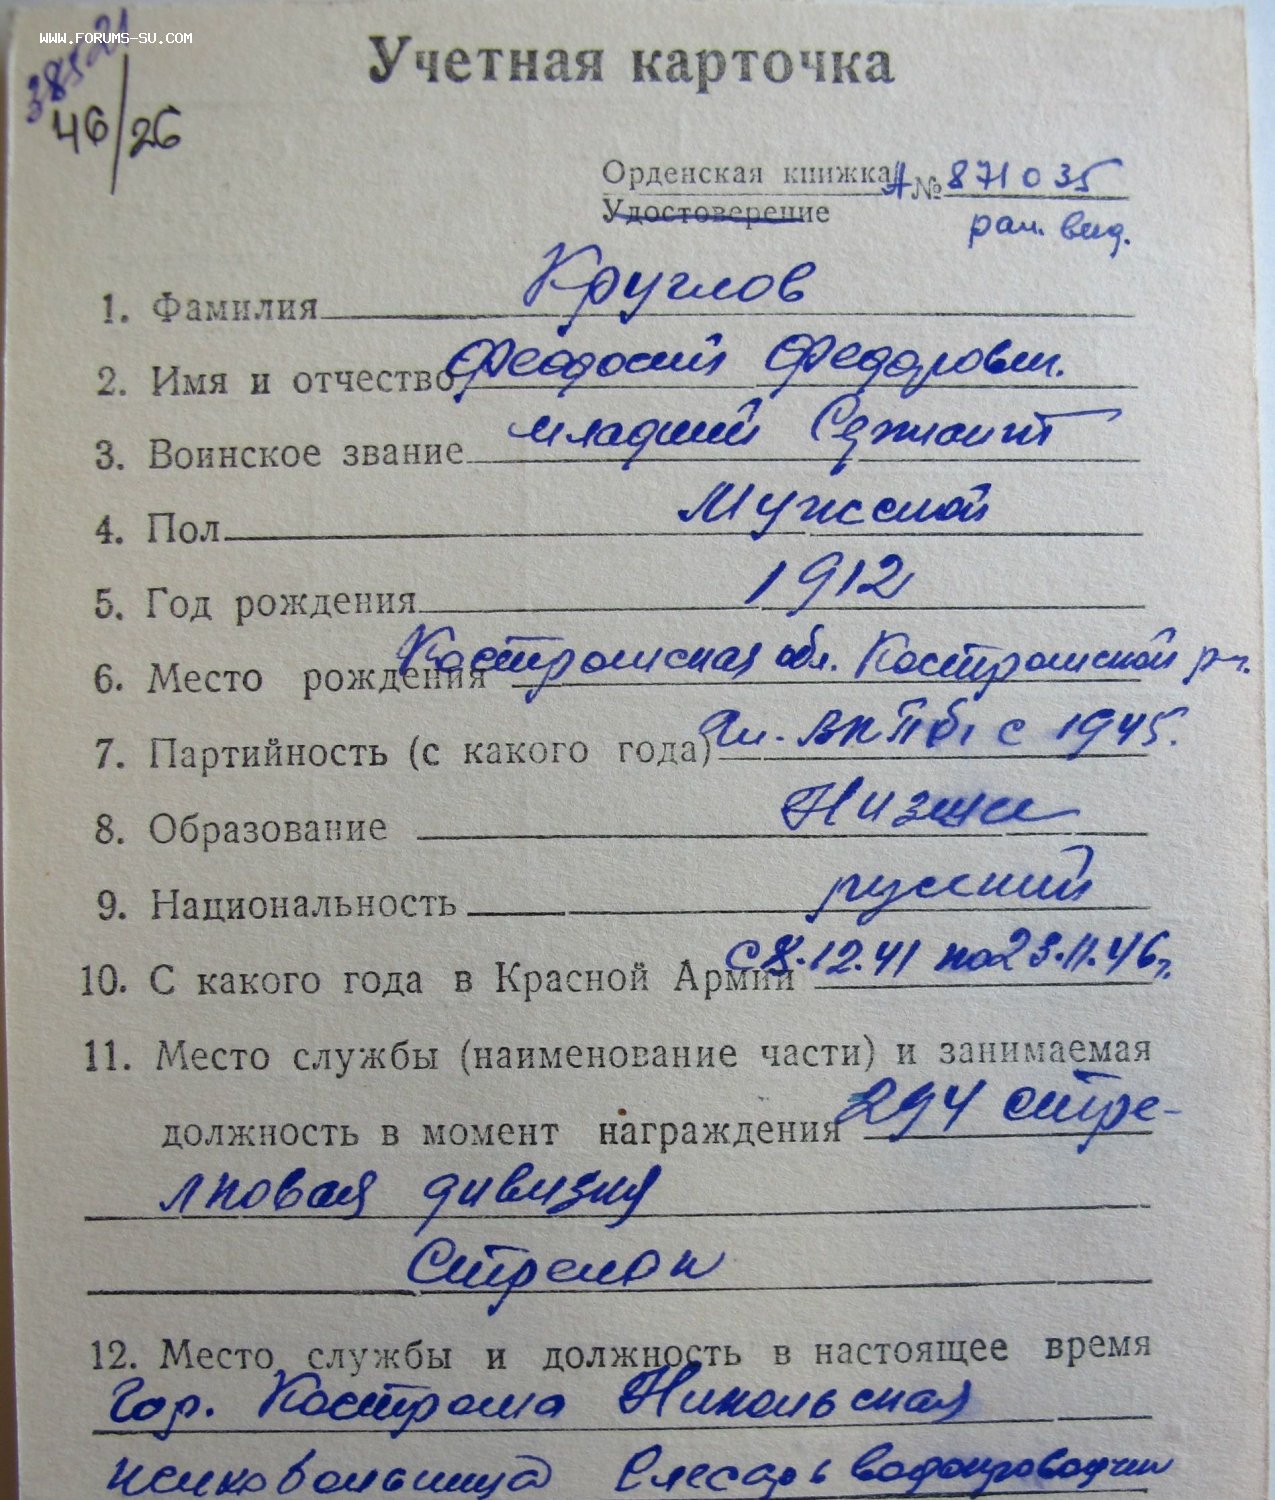 WWW.FORUMS-SU.COM
46/26
Учетная карточка
Орденская книжка А № 871035
Удостоверение
ран. выд.
1. Фамилия Круглов
2. Имя и отчество Феодосий Федорович.
3. Воинское звание младший Сержант
4. Пол Мужской
5. Год рождения 1912
6. Место рождения Костромская обл. Костромской р-н.
7. Партийность (с какого года) Чл. ВКПб с 1945.
8. Образование Низшее
9. Национальность русский
10. С какого года в Красной Армии с 8.12.41 по 23.11.46 г.
11. Место службы (наименование части) и занимаемая
должность в момент награждения 294 стре-
лковая дивизия
Стрелок
12. Место службы и должность в настоящее время
Гор. Кострома Никольская
психобольница Слесарь водопроводчик